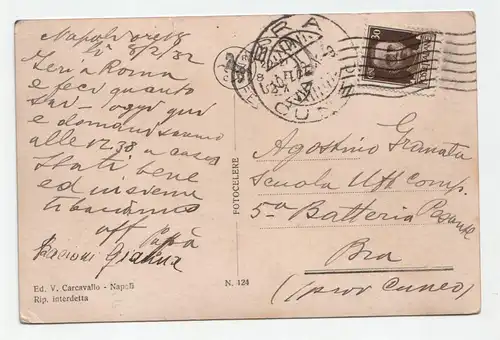 Napoli ore 18
li 8/2/32
Ieri a Roma
e feci quanto
sai - oggi qui
e domani saremo
alle 12.38 a casa
Stati bene
ed insieme
ti baciamo
aff Papà
Bacioni Gianna
Ed. V. Carcavallo - Napoli
Rip. interdetta
FOTOCELERE
N. 124
BRA
CUNEO
Agostino Granata
Scuola Uff. Comp.
5a Batteria Pesante
Bra
(prov Cuneo)